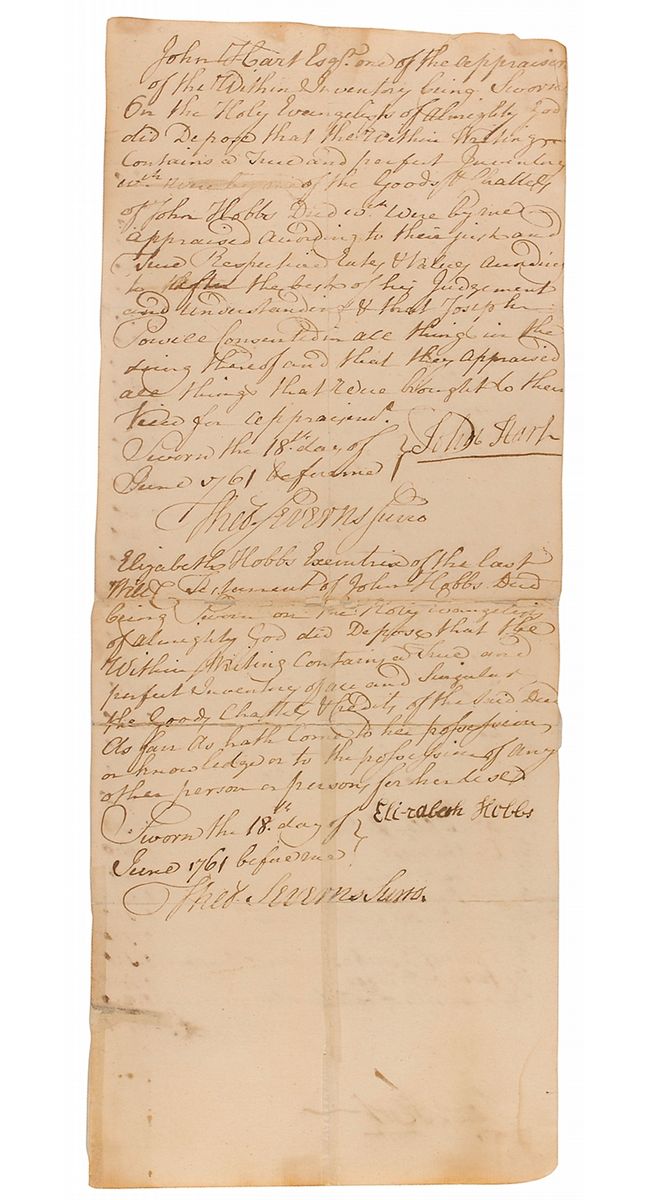 John Hart Esqr. one of the appraisers
of the Within Inventory being Sworn
On the Holy Evangelists of Almighty God
did Depose that the Within Writing
Contains a True and perfect Inventory
of the Goods & Chattels
of John Hobbs Decd wch. Were by me
appraised according to their just and
True Respective Rates & Values according
to the best of his Judgement
and understanding & that Joseph
Powell Consented in all things in the
doing thereof and that they appraised
all things that Were brought to their
View for appraisemt.
Sworn the 18th day of } John Hart
June 1761 before me
Theo Severns Surro
Elizabeth Hobbs Executrix of the last
Will & Testament of John Hobbs Decd
being Sworn on the Holy evangelists
of almighty God did Depose that the
Within Writing Contains a True and
perfect Inventory of all and Singular
the Goods Chattels & Credits of the Said Decd
As farr As hath Come to her possession
or knowledge or to the possession of any
other person or persons for her use
Sworn the 18th day of } Elizabeth Hobbs
June 1761 before me
Theo Severns Surro.